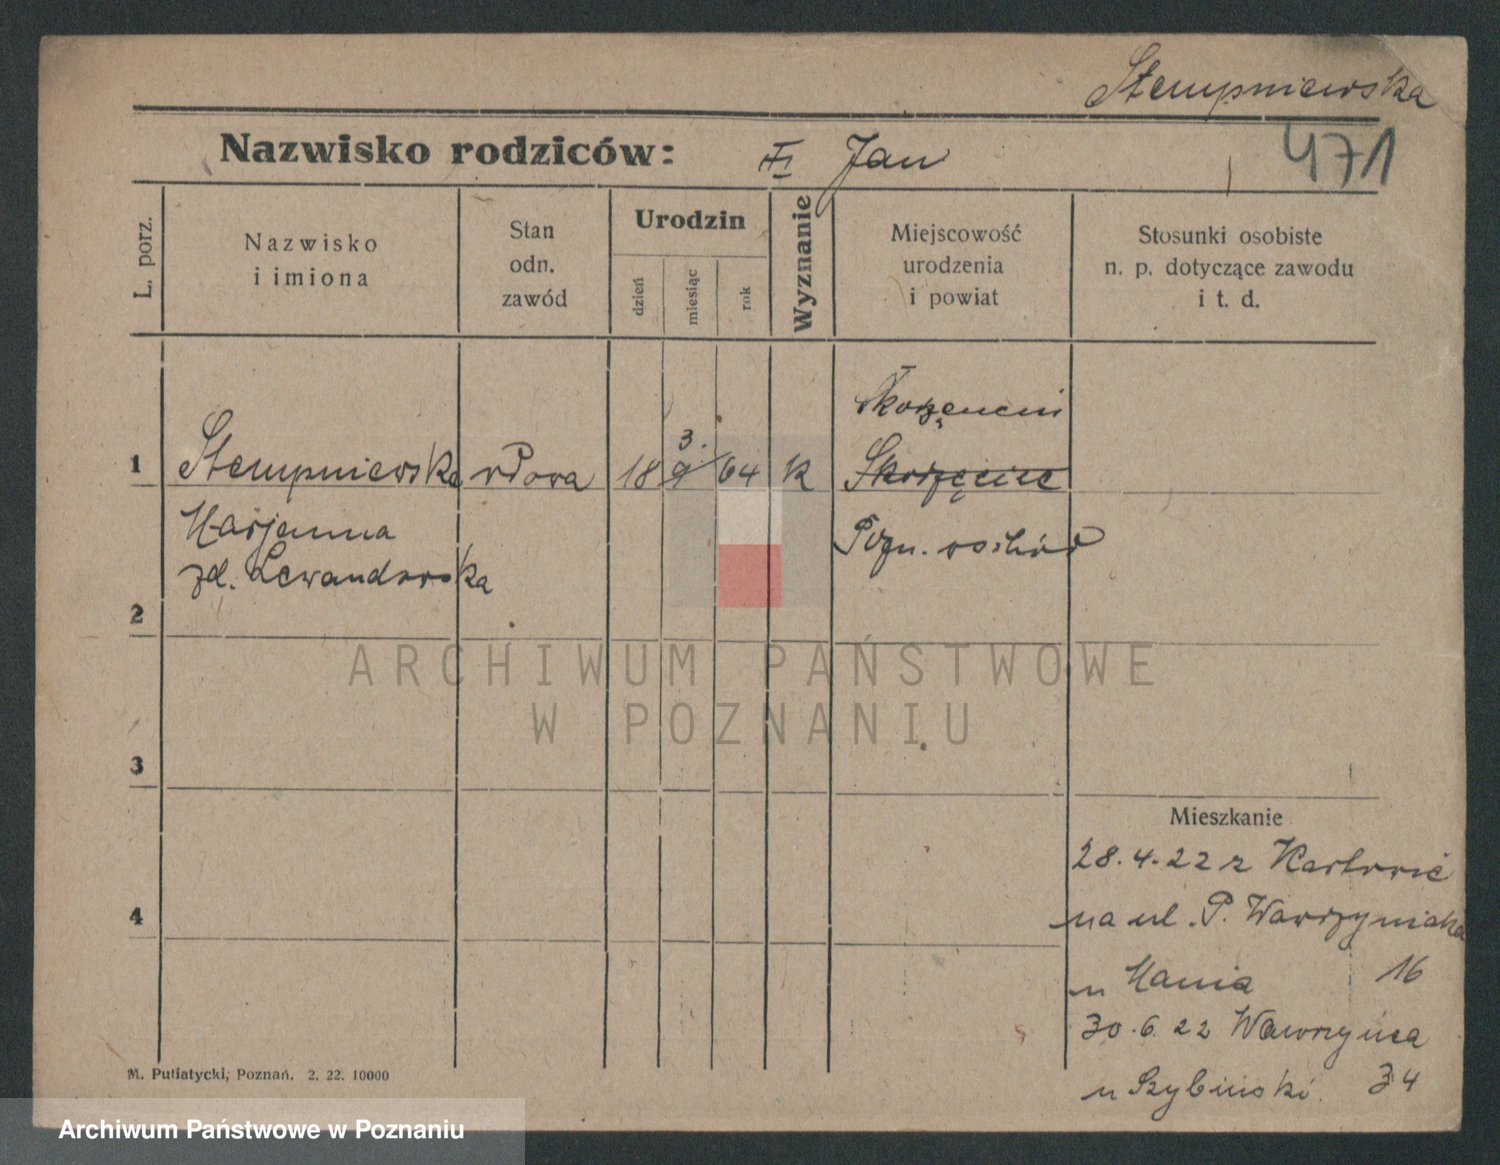 Stempniewska
Nazwisko rodziców: Jan
471
L. porz.
Nazwisko
i imiona
Stan
odn.
zawód
Urodzin
dzień
miesiąc
rok
Wyznanie
Miejscowość
urodzenia
i powiat
Stosunki osobiste
n. p. dotyczące zawodu
i t. d.
1
Stempniewska wdowa 18 3. 64 k
Skorzęcin
Marjanna
Pozn. wschód
zd. Lewandowska
2
ARCHIWUM PAŃSTWOWE
W POZNANIU
3
Mieszkanie
28.4.22 z
4
na ul. P. Wawrzyniaka
u Hania 16
30.6.22 Wawrzyńca
u Szybiński. 34
M. Putiatycki, Poznań. 2. 22. 10000
Archiwum Państwowe w Poznaniu